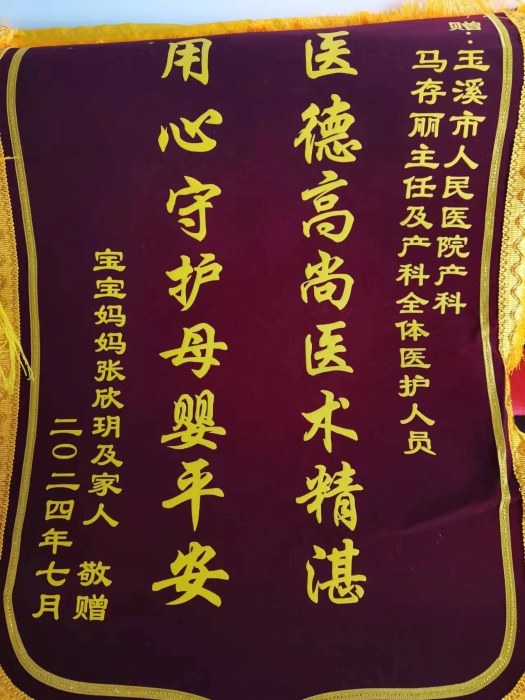 赠：玉溪市人民医院产科
马存丽主任及产科全体医护人员
医德高尚医术精湛
用心守护母婴平安
宝宝妈妈张欣玥及家人 敬赠
二〇二四年七月